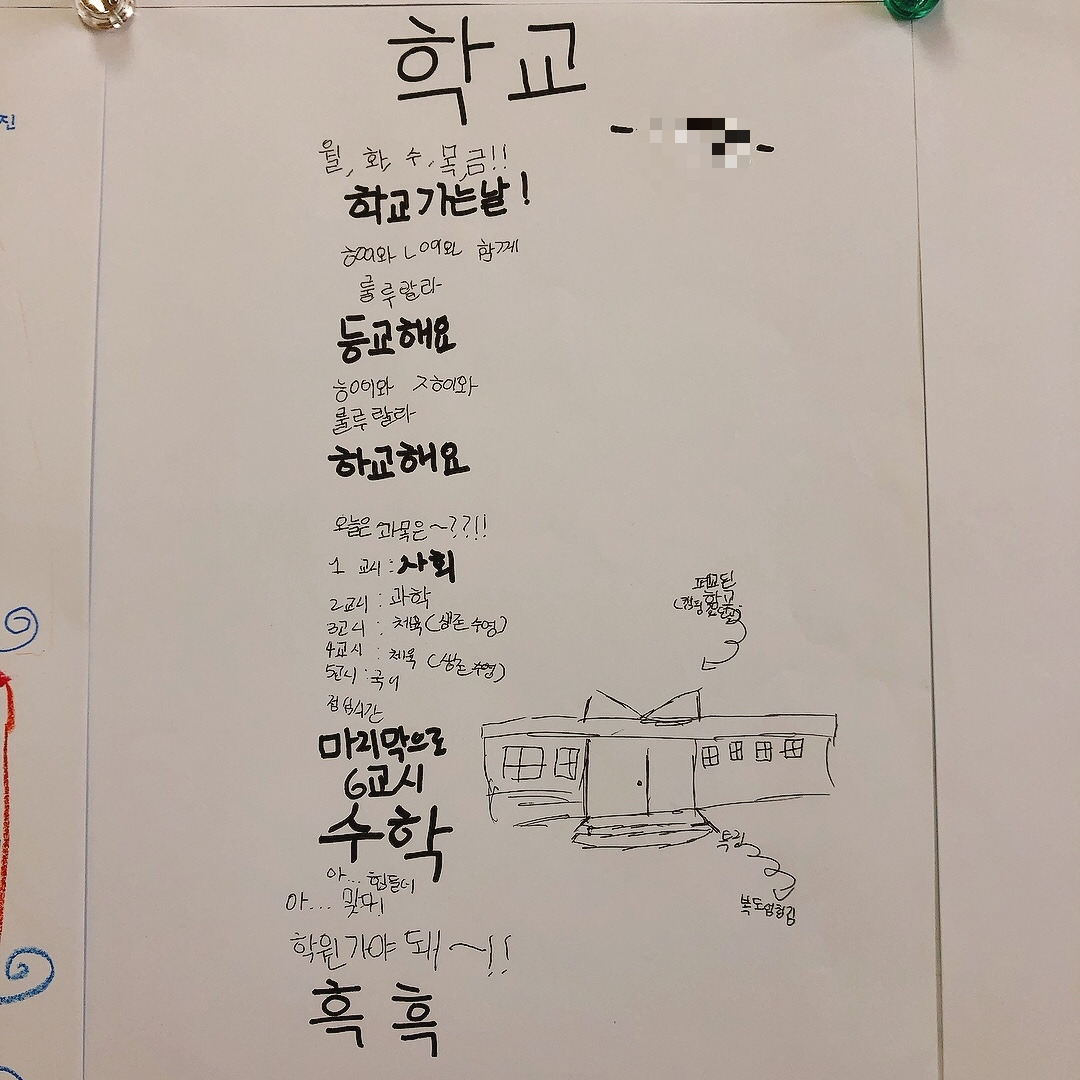 학교
월, 화, 수, 목, 금!!
학교 가는날!
함께
룰루랄라
등교해요
룰루랄라
하교해요
오늘은 과목은~??!!
1 교시 : 사회
2교시 : 과학
3교시 : 체육(생존 수영)
4교시 : 체육 (생존 수영)
5교시 : 국어
점심시간
마지막으로
6교시
수학
아... 힘들어
아... 맞다!
학원 가야 돼~!!
흑 흑
폐교된
학교
특징